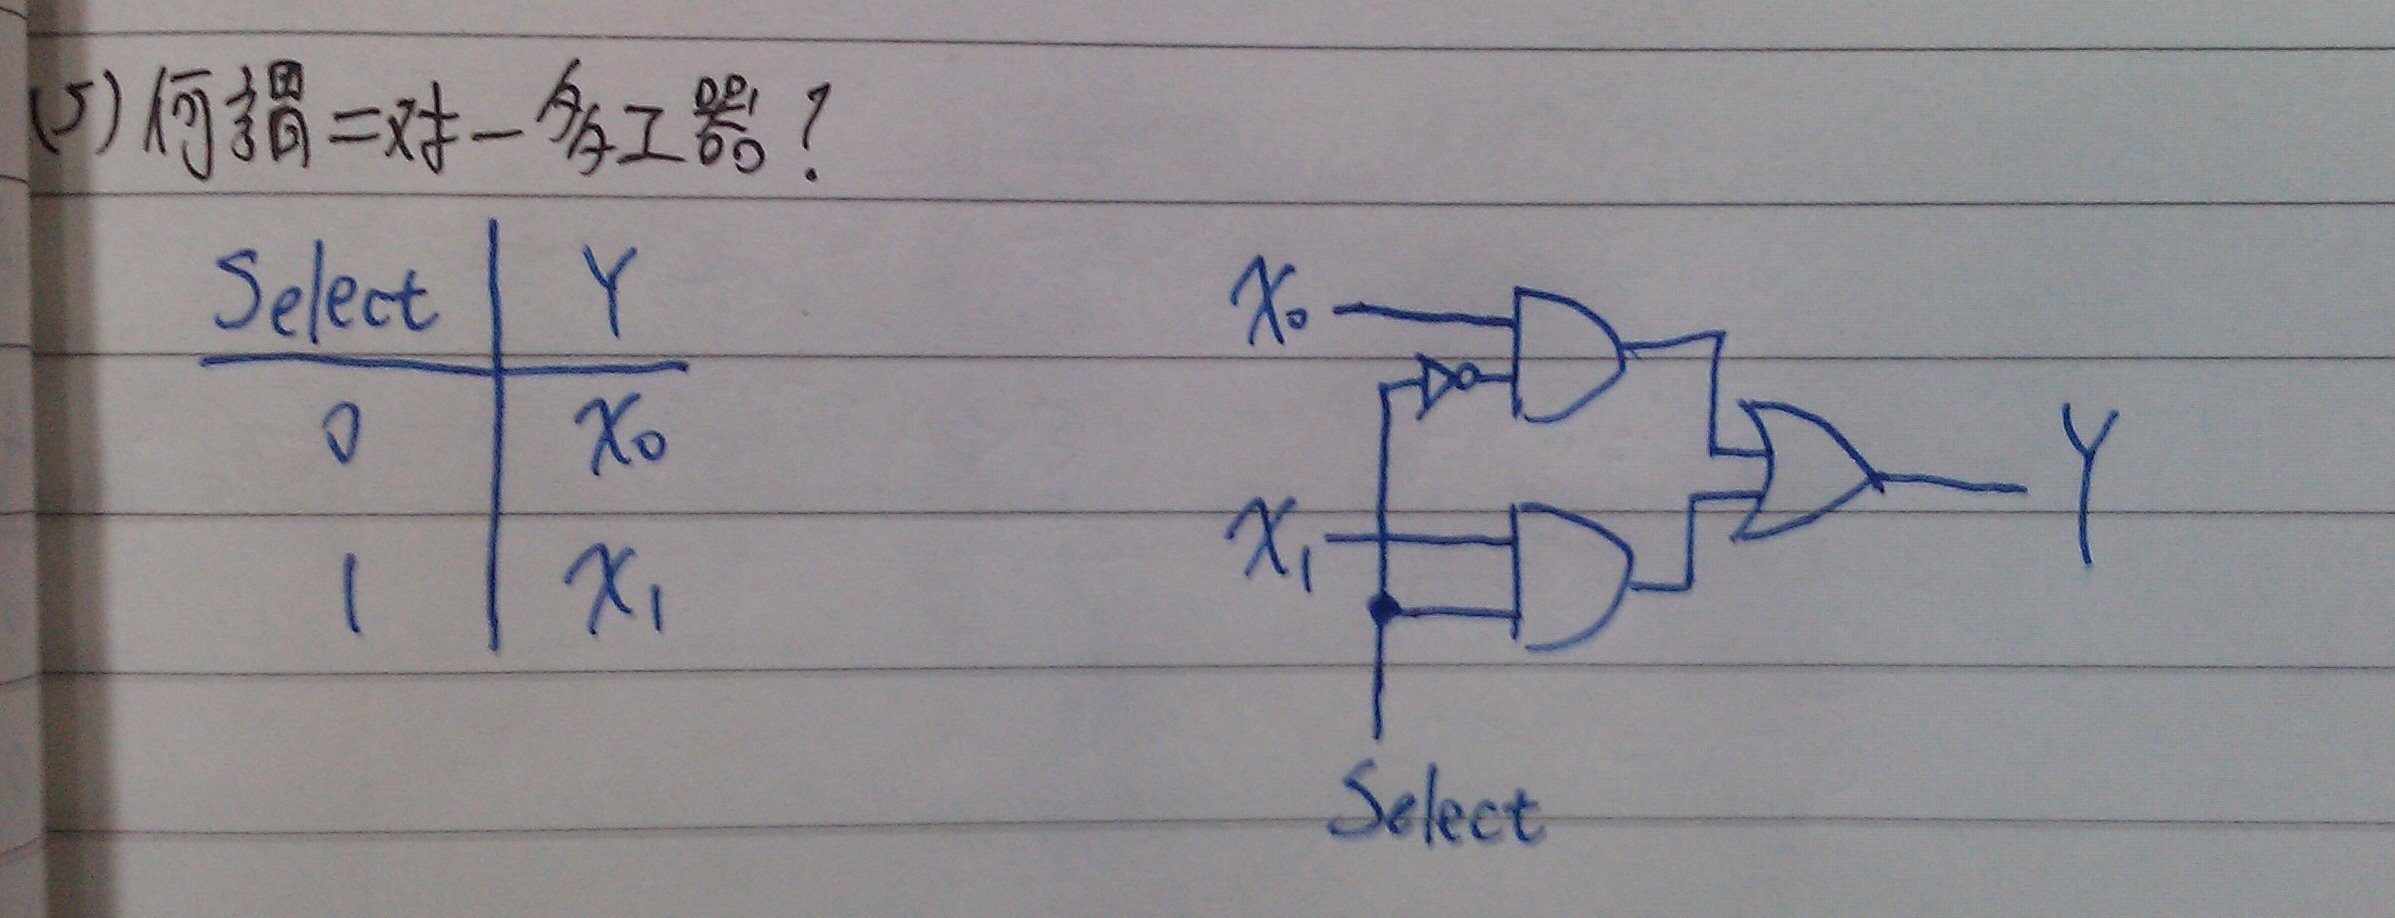 (5) 何謂二对一多工器?
Select Y
0 X₀
1 X₁
X₀
X₁
Y
Select